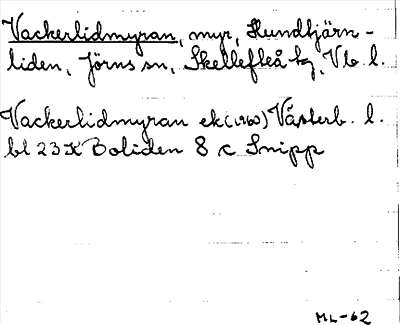 Vackerlidmyran, myr, Hundtjärn-
liden, Jörns sn, Skellefteå kg, Vb. l.
Vackerlidmyran ek (1960) Västerb. l.
bl 23 K Boliden 8 c Snipp
ML-62